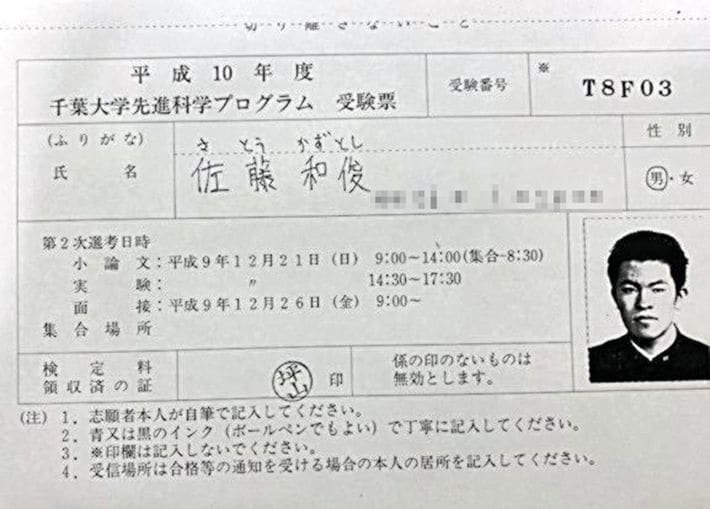 切り離さないこと
平成10年度
千葉大学先進科学プログラム 受験票
受験番号
※
T8F03
(ふりがな)
さとう かずとし
氏名
佐藤 和俊
性別
男・女
第2次選考日時
小論文:平成9年12月21日(日) 9:00~14:00(集合-8:30)
実験: 〃 14:30~17:30
面接:平成9年12月26日(金) 9:00~
集合場所
検定料
領収済の証
坪山
印
係の印のないものは
無効とします。
(注) 1.志願者本人が自筆で記入してください。
2.青又は黒のインク(ボールペンでもよい)で丁寧に記入してください。
3.※印欄は記入しないでください。
4.受信場所は合格等の通知を受ける場合の本人の居所を記入してください。